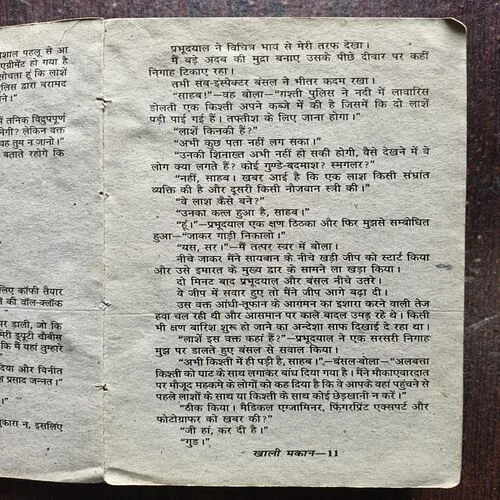 शाल पहलू से आ
एग्रीमेंट हो गया है
सोचता हूं कि लाशें
पुलिस द्वारा बरामद
ने।”
में तनिक विद्रुपपूर्ण
मेगी? लेकिन वक्त
वह तुम न जानो।”
बताते रहोगे कि
लिए कॉफी तैयार
से की वॉल-क्लॉक
पर डाली, जो कि
मेरी ड्यूटी चौबीस
कि मैं यहां तुम्हारे
दिया और विनीत
प्रसाद जन्नत।”
पुकारा न, इसलिए
प्रभूदयाल ने विचित्र भाव से मेरी तरफ देखा।
मैं बड़े अदब की मुद्रा बनाए उसके पीछे दीवार पर कहीं
निगाह टिकाए रहा।
तभी सब-इंस्पेक्टर बंसल ने भीतर कदम रखा।
“साहब!”—वह बोला—“गश्ती पुलिस ने नदी में लावारिस
डोलती एक किश्ती अपने कब्जे में की है जिसमें कि दो लाशें
पड़ी पाई गई हैं। तफ्तीश के लिए जाना होगा।”
“लाशें किनकी हैं?”
“अभी कुछ पता नहीं लग सका।”
“उनकी शिनाख्त अभी नहीं हो सकी होगी, वैसे देखने में वे
लोग क्या लगते हैं? कोई गुण्डे-बदमाश? स्मगलर?”
“नहीं, साहब। खबर आई है कि एक लाश किसी संभ्रांत
व्यक्ति की है और दूसरी किसी नौजवान स्त्री की।”
“वे लाश कैसे बने?”
“उनका कत्ल हुआ है, साहब।”
“हूं।”—प्रभूदयाल एक क्षण ठिठका और फिर मुझसे सम्बोधित
हुआ—“जाकर गाड़ी निकालो।”
“यस, सर।”—मैं तत्पर स्वर में बोला।
नीचे जाकर मैंने सायबान के नीचे खड़ी जीप को स्टार्ट किया
और उसे इमारत के मुख्य द्वार के सामने ला खड़ा किया।
दो मिनट बाद प्रभूदयाल और बंसल नीचे उतरे।
वे जीप में सवार हुए तो मैंने जीप आगे बढ़ा दी।
उस वक्त आंधी-तूफान के आगमन का इशारा करने वाली तेज
हवा चल रही थी और आसमान पर काले बादल उमड़ रहे थे। किसी
भी क्षण बारिश शुरू हो जाने का अन्देशा साफ दिखाई दे रहा था।
“लाशें इस वक्त कहां हैं?”—प्रभूदयाल ने एक सरसरी निगाह
मुझ पर डालते हुए बंसल से सवाल किया।
“अभी किश्ती में ही पड़ी हैं, साहब।”—बंसल-बोला—“अलबत्ता
किश्ती को घाट के साथ लगाकर बांध दिया गया है। मैंने मौकाएवारदात
पर मौजूद महकमे के लोगों को कह दिया है कि वे आपके वहां पहुंचने से
पहले लाशों के साथ या किश्ती के साथ कोई छेड़खानी न करें।”
“ठीक किया। मैडिकल एग्जामिनर, फिंगरप्रिंट एक्सपर्ट और
फोटोग्राफर को खबर की?”
“जी हां, कर दी है।”
“गुड।”
खाली मकान—11